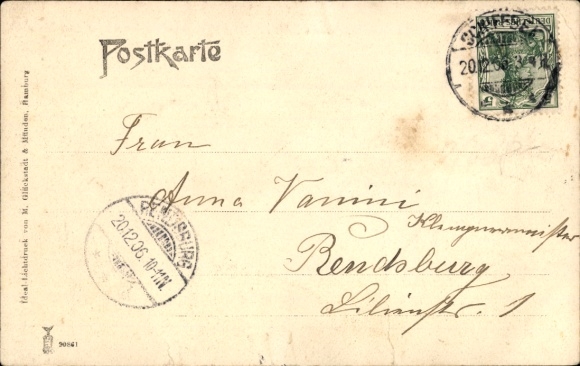 Postkarte
SCHIFFBEK
20.12.06. 3-4 N.
Frau
Anna Vanini
Klempnermeister
Rendsburg
Lilienstr. 1
RENDSBURG
20.12.06. 10-11N.
Ideal-Lichtdruck von M. Glückstadt & Münden, Hamburg
90861